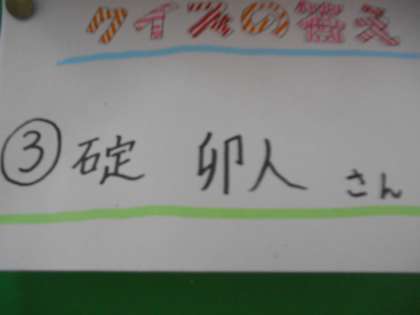 クイズの答え
③碇 卯人 さん